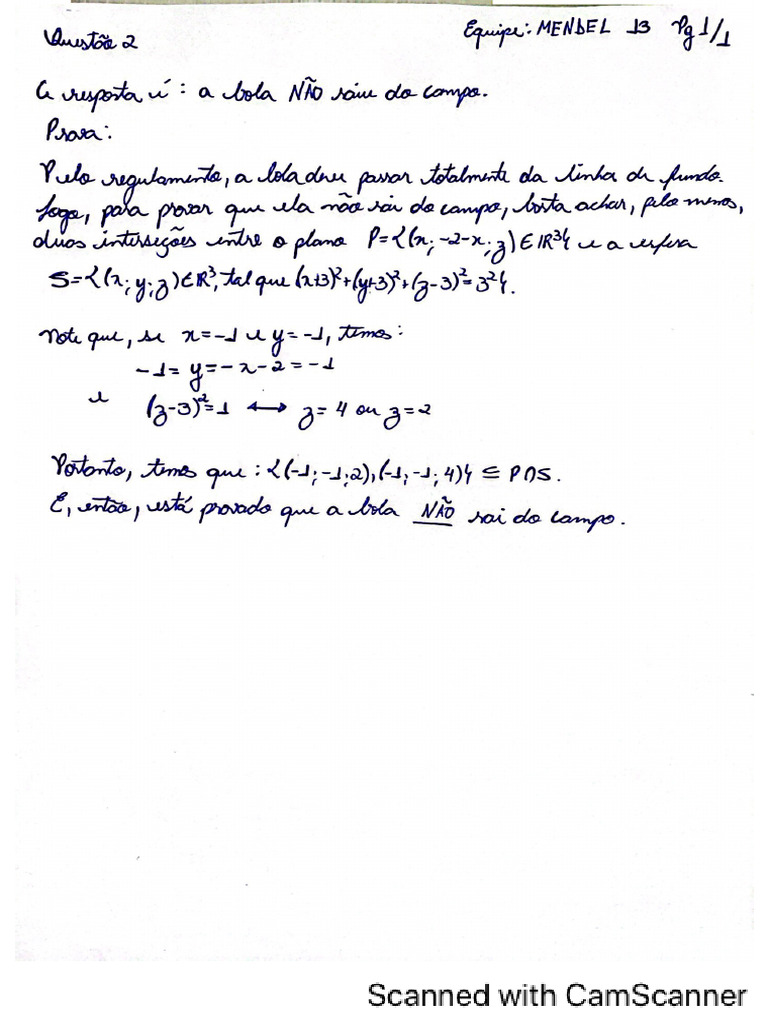 Questão 2
Equipe: MENDEL 13 Pg 1/1
A resposta é: a bola NÃO saiu do campo.
Prova:
Pelo regulamento, a bola deve passar totalmente da linha de fundo.
Logo, para provar que ela não sai do campo, basta achar, pelo menos,
duas interseções entre o plano P={(x; -2-x; z) ∈ IR³} e a esfera
S={(x; y; z) ∈ IR³, tal que (x+3)²+(y+3)²+(z-3)²=3²}.
Note que, se x=-1 e y=-1, temos:
-1= y=-x-2=-1
e (z-3)²=1 ↔ z=4 ou z=2
Portanto, temos que: {(-1;-1;2),(-1;-1;4)} ⊆ P∩S.
E, então, está provado que a bola NÃO sai do campo.
Scanned with CamScanner